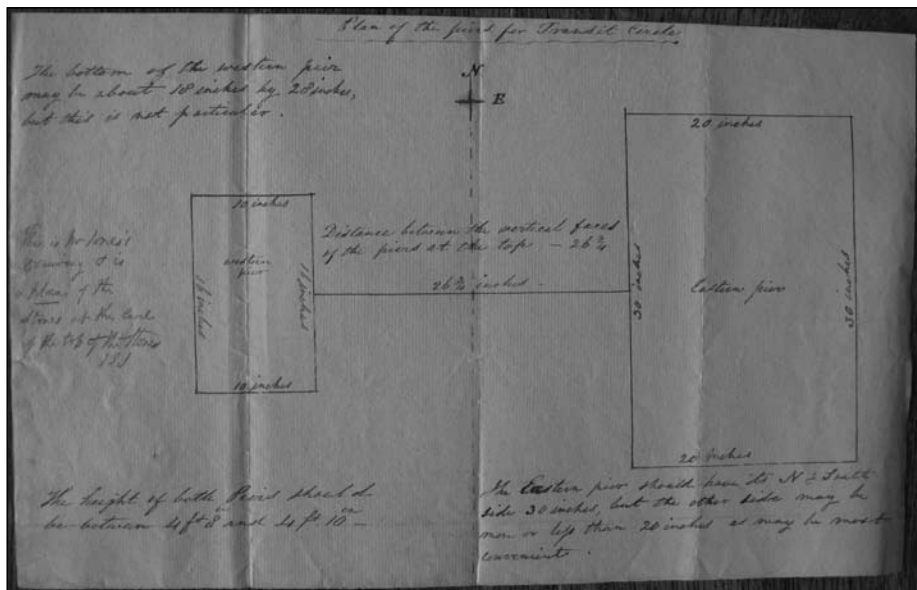 Plan of the piers for Transit Circle
The bottom of the western pier
may be about 18 inches by 28 inches,
but this is not particular.
N
E
20 inches
10 inches
western
pier
Distance between the vertical faces
of the piers at the top — 26¾
26¾ inches.
30 inches
Eastern pier
30 inches
This is Mr Jones's
drawing & is
a Plan of the
stones at the level
of the top of the stones
inches
inches
10 inches
20 inches
The height of both Piers should
be between 4 ft 8 in and 4 ft 10 in —
The Eastern pier should have its N & South
side 30 inches, but the other side may be
more or less than 20 inches as may be most
convenient.